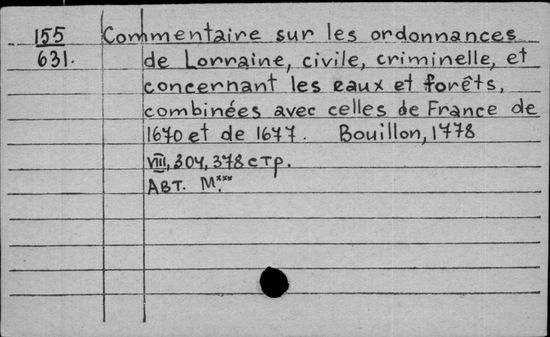 155 Commentaire sur les ordonnances
631. de Lorraine, civile, criminelle, et
concernant les eaux et forêts,
combinées avec celles de France de
1670 et de 1677. Bouillon, 1778
VIII, 304, 378 стр.
Авт. M.***